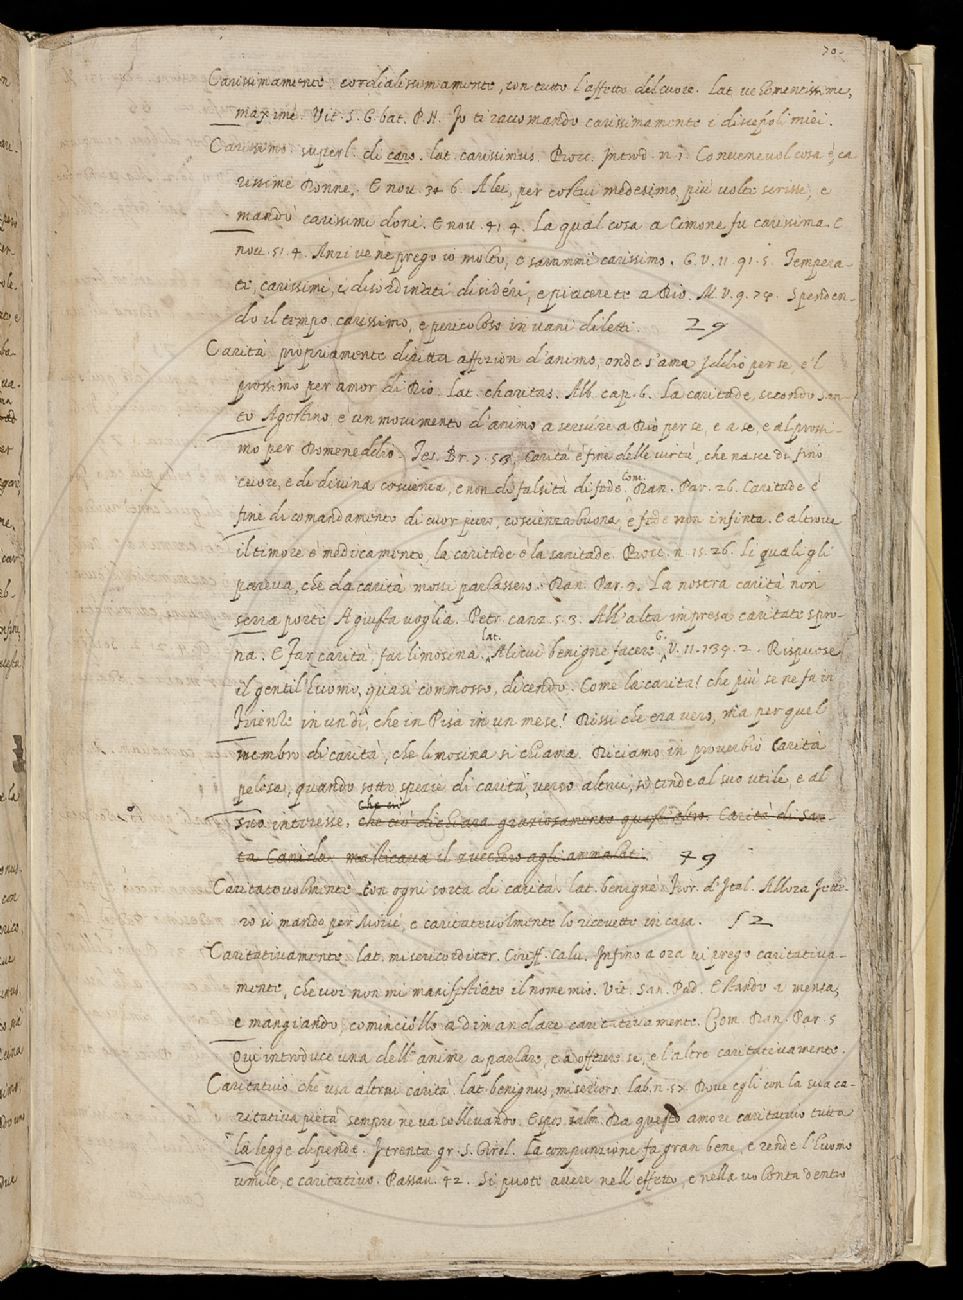 70.
Carissimamente. cordialissimamente, con tutto l'affetto del cuore. Lat. vehementissime,
maxime. Vit. S. G. bat. P. N. Io ti raccomando carissimamente i discepoli miei.
Carissimo. superl. di caro. lat. carissimus. Bocc. Introd. n. 1. Convenevol cosa è, ca
rissime Donne. E nov. 6. A lei, per costui medesimo, più volte scrisse, e
mandò carissimi doni. E nov. 41. 4. La qual cosa a Cimone fu carissima. E
nov. 51. 4. Anzi ve ne prego io molto, e sarammi carissimo. G. V. 11. 91. 5. Tempera-
te, carissimi, i disordinati disidéri, e piacerete a Dio. M. V. 9. Spenden-
do il tempo carissimo, e pericoloso in vani diletti. 29
Carità, propriamente diritta affezion d'animo, onde s'ama Iddio per se, e 'l
prossimo per amor di Dio. Lat. charitas. Alb. cap. 6. La caritade, secondo San-
to Agostino, è un movimento d'animo a servire a Dio per se, e a se, e al prossi-
mo per Domeneddio. Tes. Br. 7. 53. Carità è fine delle virtù, che nasce di fino
cuore, e di divina coscienza, e non di falsità di fede. Com. Dan. Par. 26. Caritade è
fine di comandamento di cuor puro, coscienza buona, e fede non infinta. E altrove
il timore è medicamento, la caritade è la sanitade. Bocc. n. 15. 26. Li quali gli
pareva, che da carità mossi parlassero. Dan. Par. 3. La nostra carità non
serra porte A giusta voglia. Petr. canz. 5. 3. All'alta impresa caritate spro-
na. E Far carità, far limosina. lat. Alicui benigne facere. G. V. 11. 139. 2. Rispuose
il gentil'huomo, quasi commosso, dicendo. Come la carità! che più se ne fa in
Firenze in un dì, che in Pisa in un mese! Dissi che era vero, ma per quel
membro di carità, che limosina si chiama. Diciamo in proverbio Carità
pelosa, quando sotto spezie di carità, verso altrui, s'intende al suo utile, e al
suo interesse, che ciò dichiara graziosamente quest' altro. Carità di San-
ta Canida masticava il zucchero agli ammalati. 49
Caritatevolmente. Con ogni sorta di carità. lat. benignè. Fior. d'Ital. Allora Jetr-
ro si mandò per Moisè, e caritatevolmente lo ricevette in casa. 52
Caritativamente. lat. misericorditer. Giuff. Calv. Infino a ora vi prego caritativa-
mente, che voi non mi manifestiate il nome mio. Vit. San. Pad. E stando a mensa,
e mangiando, cominciollo a dimandare caritativamente. Com. Dan. Par. 5
Qui introduce una dell'anime a parlare, e a offerere se, e l'altre caritativamente.
Caritativo. che usa altrui carità. lat. benignus, misericors. lab. n. Dove egli con la sua ca-
ritativa pietà sempre ne va sollevando. Espos. salm. Da questo amore caritativo tutta
la legge dipende. Trenta gr. S. Girol. La compunzione fa gran bene, e rende l'huomo
umile, e caritativo. Passav. 42. Si puote avere nell'effetto, e nella volontà dentro